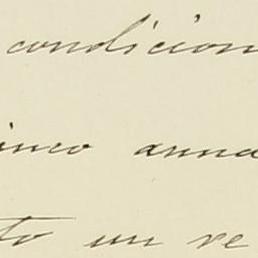 condicion
inco anna
to un re